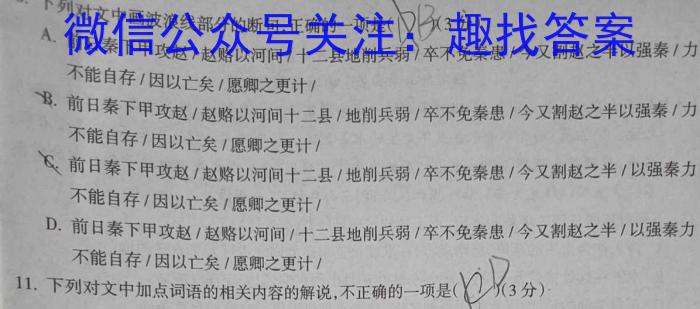 下列对文中画波浪线部分的断句,正确的一项是( B )(3
微信公众号关注:趣找答案
A. 前日秦下甲攻赵/赵赂以河间/十二县地削兵弱/卒不免秦患/今又割赵之半以强秦/力
不能自存/因以亡矣/愿卿之更计/
B. 前日秦下甲攻赵/赵赂以河间十二县/地削兵弱/卒不免秦患/今又割赵之半以强秦/力
不能自存/因以亡矣/愿卿之更计/
C. 前日秦下甲攻赵/赵赂以河间十二县/地削兵弱/卒不免秦患/今又割赵之半/以强秦力
不能自存/因以亡矣/愿卿之更计/
D. 前日秦下甲攻赵/赵赂以河间/十二县地削兵弱/卒不免秦患/今又割赵之半/以强秦力
不能自存/因以亡矣/愿卿之更计/
11. 下列对文中加点词语的相关内容的解说,不正确的一项是( D )(3分)